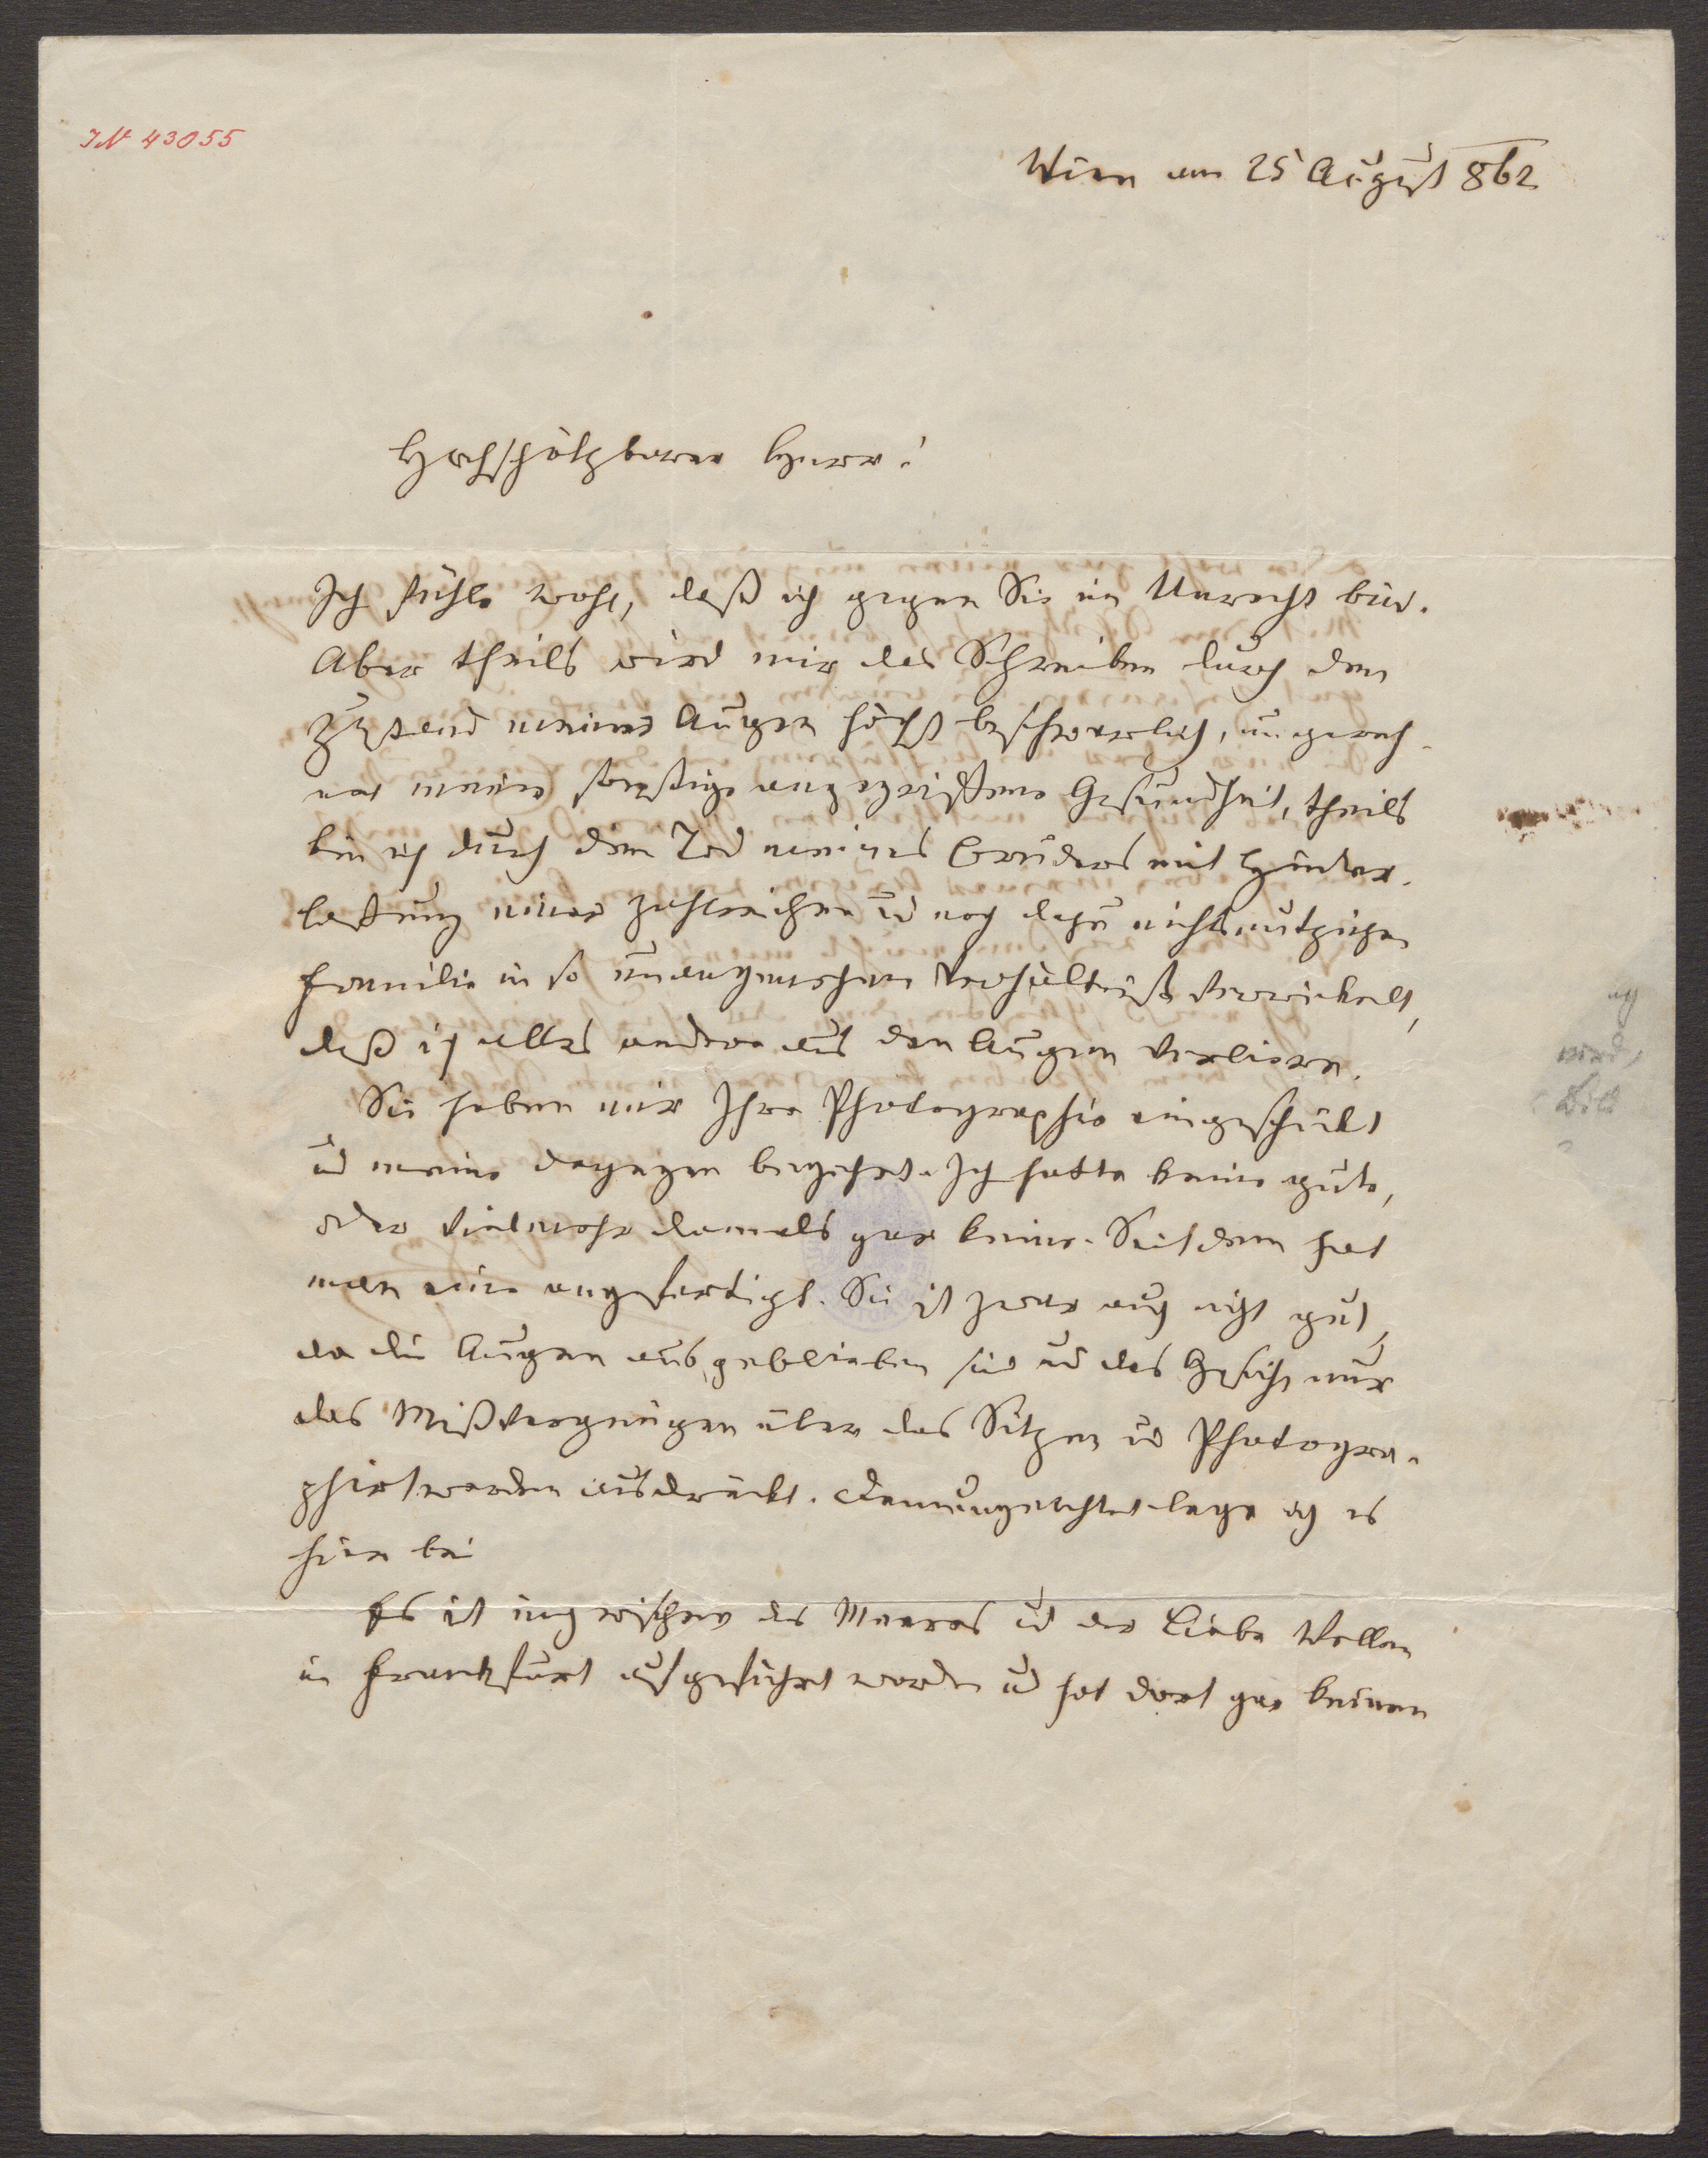 IN 43055
Wien am 25 August 862
Hochschätzbarer Herr!
Ich fühle wohl, daß ich gegen Sie im Unrecht bin.
Aber theils wird mir das Schreiben durch den
Zustand meiner Augen höchst beschwerlich, ungerech-
net meine sonstige angegriffene Gesundheit, theils
bin ich durch den Tod meines Bruders mit Hinter-
lassung einer zahlreichen und noch dazu nichtsnutzigen
Familie in so unangenehme Verhältniße verwickelt,
daß ich alles andere aus den Augen verliere.
Sie haben mir Ihre Photographie eingeschickt
und meine dagegen begehrt. Ich hatte keine gute,
oder vielmehr damals gar keine. Seitdem hat
man eine angefertigt. Sie ist zwar auch nicht gut,
da die Augen ausgeblieben sind und das Gesicht nur
das Mißvergnügen über das Sitzen und Photogra-
phirtwerden ausdrückt. Demungeachtet lege ich es
hier bei
Es ist inzwischen des Meeres und der Liebe Wellen
in Frankfurt aufgeführt worden und hat dort gar keinen